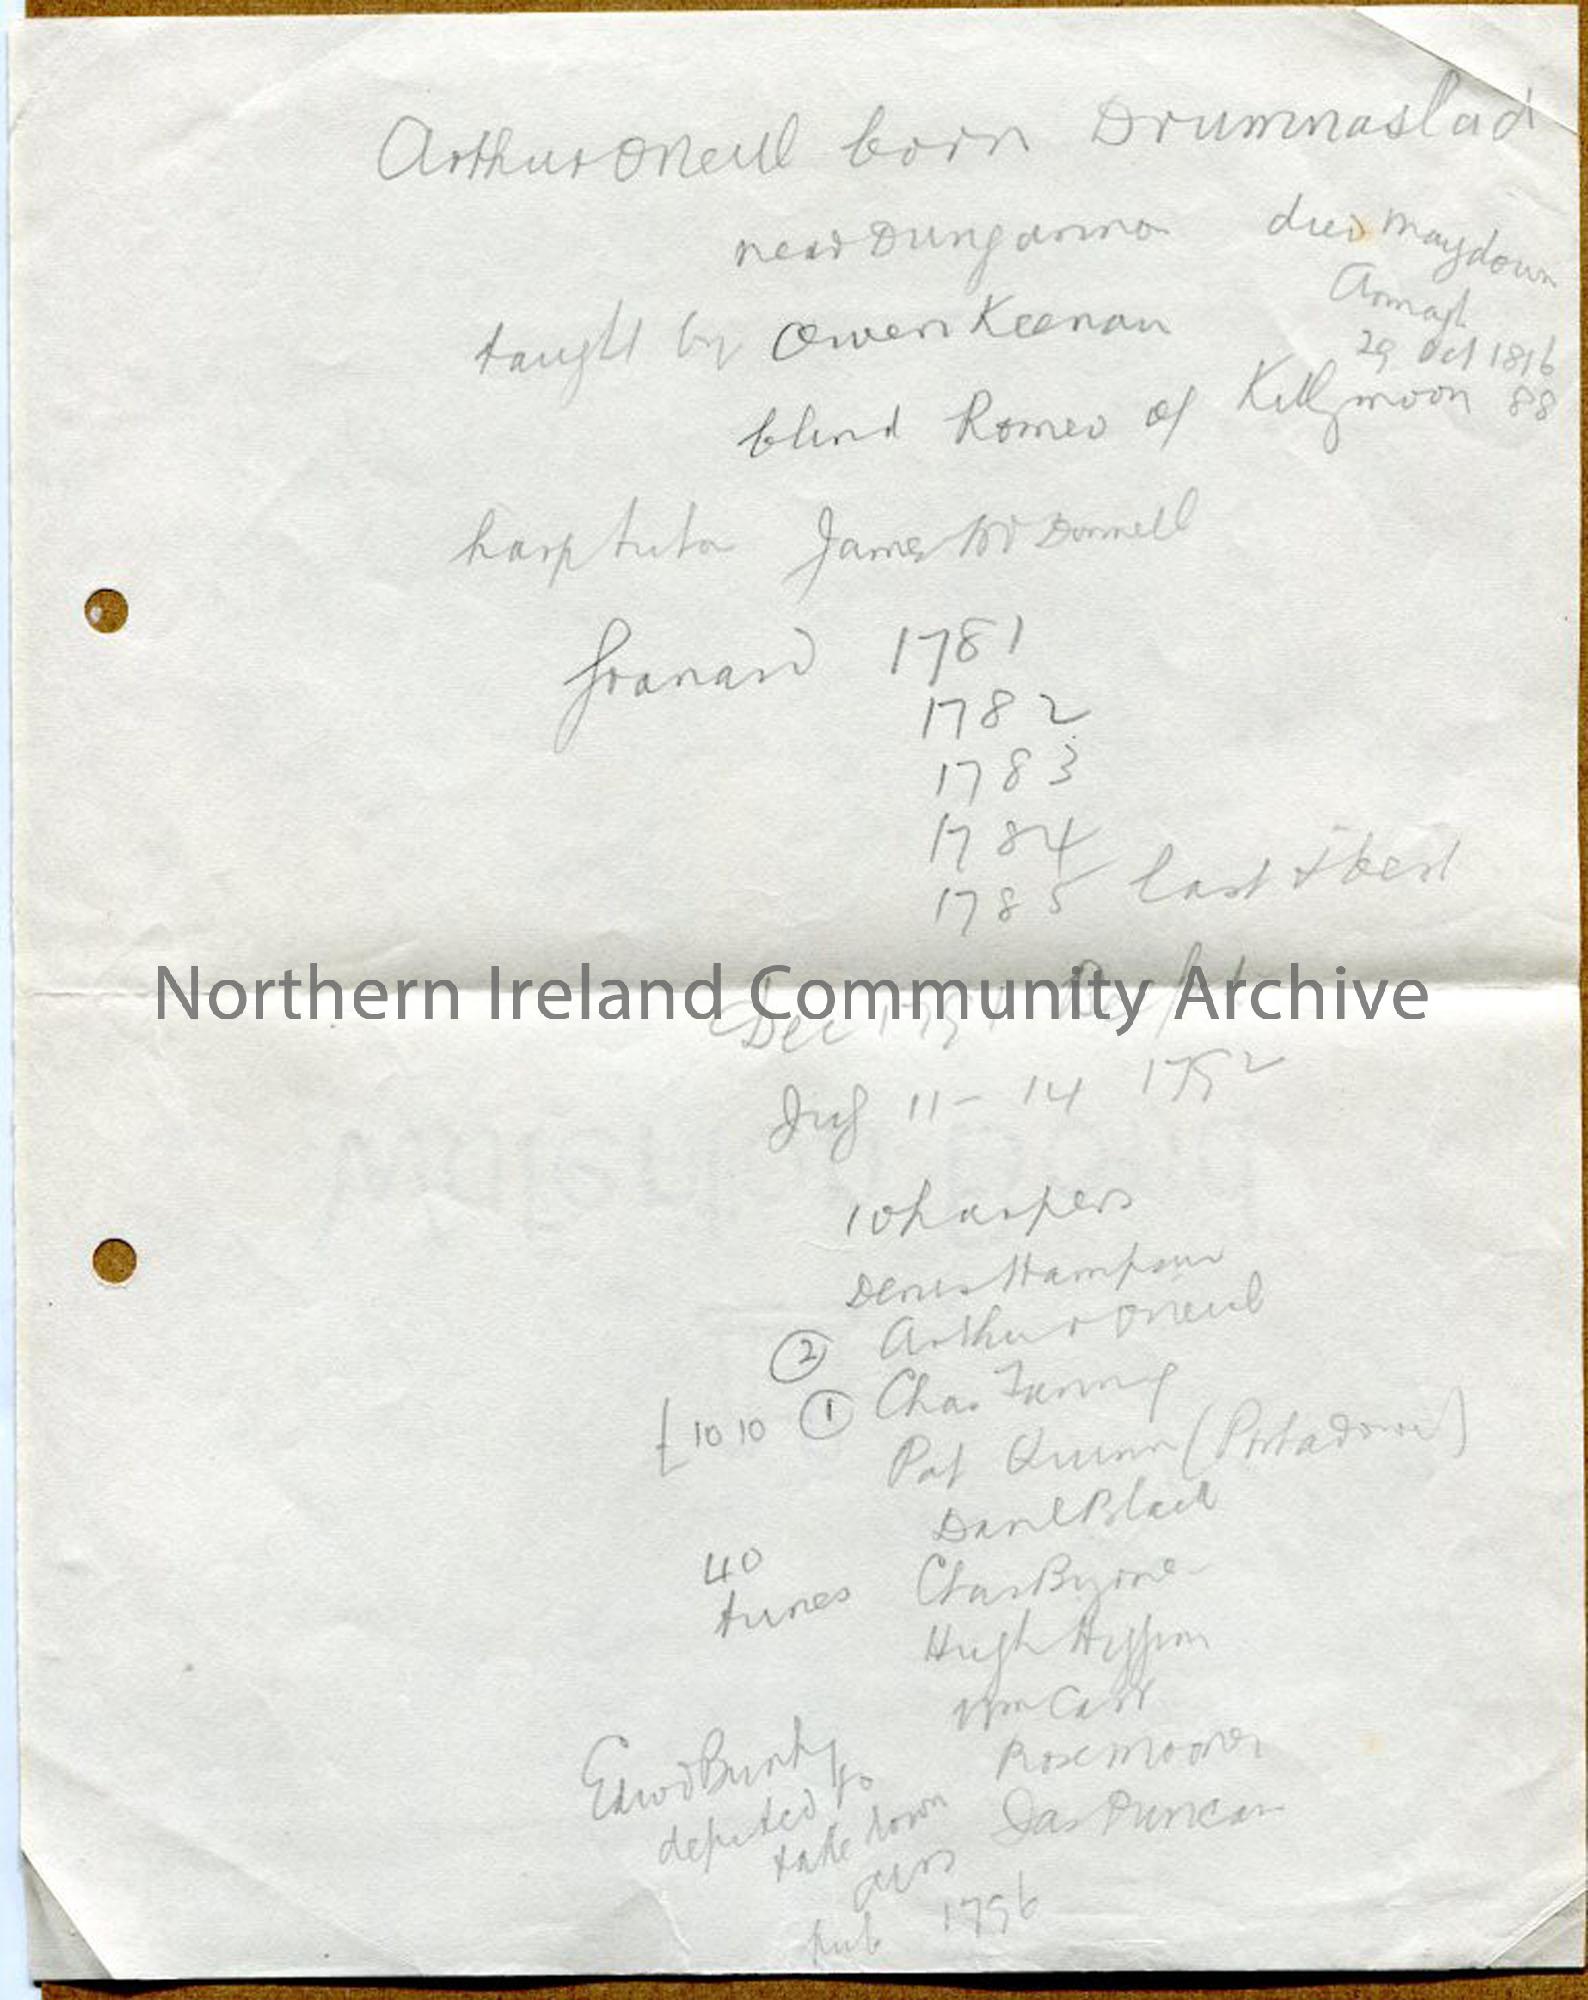 Arthur O Neill born Drumnaslad
near Dungannon
died Maydown
Armagh
29 Oct 1816
88
taught by Owen Keenan
blind Romeo of Killymoon
harp tutor James McDonnell
Granard 1781
1782
1783
1784
1785 last & best
Northern Ireland Community Archive
Dec 1791 Belfast
July 11 - 14 1792
10 harpers
Denis Hampson
② Arthur O Neill
£10 10 ① Chas Fanning
Pat Quinn (Portadown)
Danl Black
40
tunes
Chas Byrne
Hugh Higgins
Wm Carr
Rose Mooney
Jas Duncan
Edwd Bunting
deputed to
take down
airs
pub 1796